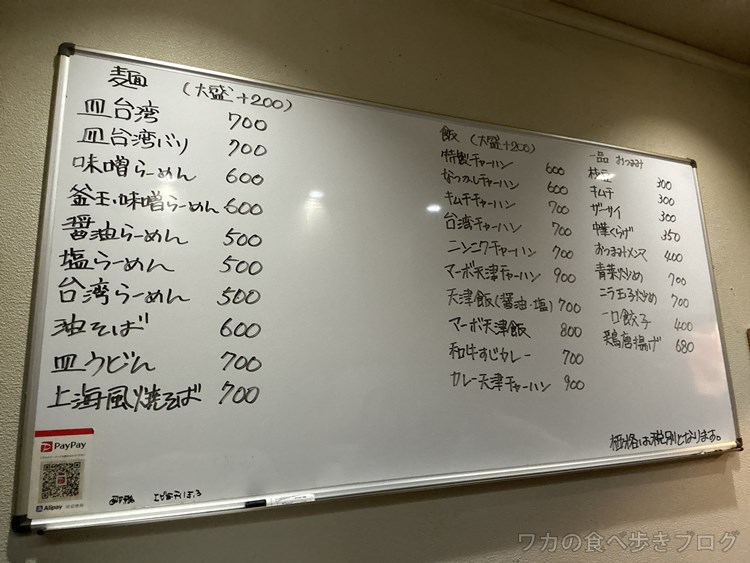 麺 (大盛+200)
皿台湾 700
皿台湾バリ 700
味噌らーめん 600
釜玉・味噌らーめん 600
醤油らーめん 500
塩らーめん 500
台湾らーめん 500
油そば 600
皿うどん 700
上海風焼そば 700
飯 (大盛+200)
特製チャーハン 600
なつかしチャーハン 600
キムチチャーハン 700
台湾チャーハン 700
ニンニクチャーハン 700
マーボ天津チャーハン 900
天津飯(醤油・塩) 700
マーボ天津飯 800
和牛すじカレー 700
カレー天津チャーハン 900
一品 おつまみ
枝豆 300
キムチ 300
ザーサイ 300
中華くらげ 350
おつまみメンマ 400
青菜炒め 700
ニラ玉子炒め 700
一口餃子 400
鶏唐揚げ 680
価格は税別となります。
PayPay
Alipay
ワカの食べ歩きブログ